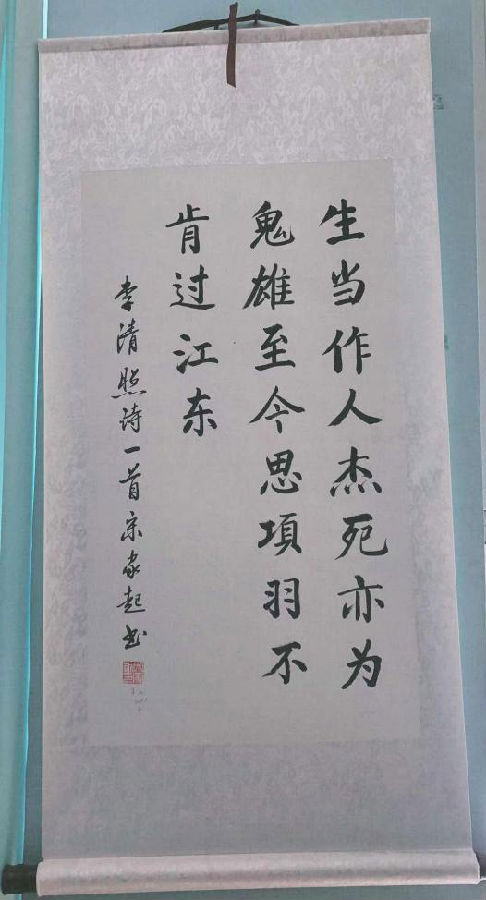 生当作人杰死亦为
鬼雄至今思項羽不
肯过江东
李清照诗一首宗家起书